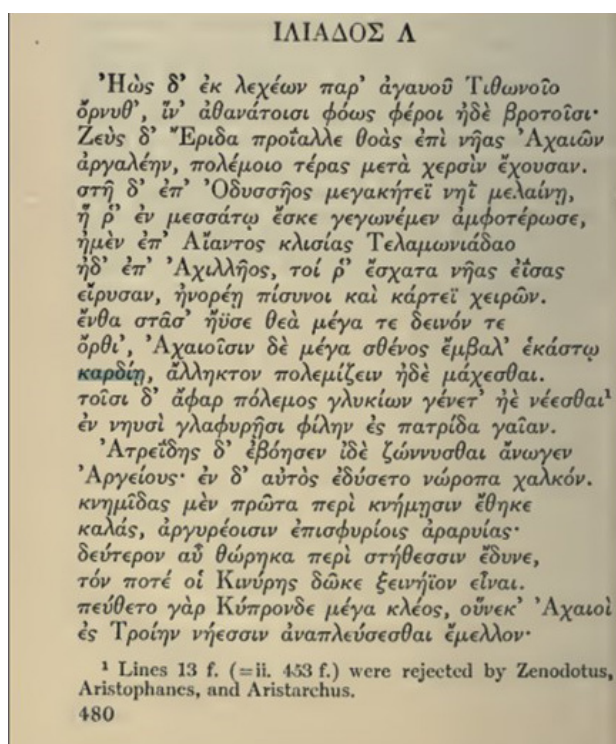 ΙΛΙΑΔΟΣ Λ
Ἠὼς δ’ ἐκ λεχέων παρ’ ἀγαυοῦ Τιθωνοῖο
ὄρνυθ’, ἵν’ ἀθανάτοισι φόως φέροι ἠδὲ βροτοῖσι·
Ζεὺς δ’ Ἔριδα προΐαλλε θοὰς ἐπὶ νῆας Ἀχαιῶν
ἀργαλέην, πολέμοιο τέρας μετὰ χερσὶν ἔχουσαν.
στῆ δ’ ἐπ’ Ὀδυσσῆος μεγακήτεϊ νηῒ μελαίνῃ,
ἥ ῥ’ ἐν μεσσάτῳ ἔσκε γεγωνέμεν ἀμφοτέρωσε,
ἠμὲν ἐπ’ Αἴαντος κλισίας Τελαμωνιάδαο
ἠδ’ ἐπ’ Ἀχιλλῆος, τοί ῥ’ ἔσχατα νῆας ἐΐσας
εἴρυσαν, ἠνορέῃ πίσυνοι καὶ κάρτεϊ χειρῶν.
ἔνθα στᾶσ’ ἤϋσε θεὰ μέγα τε δεινόν τε
ὄρθι’, Ἀχαιοῖσιν δὲ μέγα σθένος ἔμβαλ’ ἑκάστῳ
καρδίῃ, ἄλληκτον πολεμίζειν ἠδὲ μάχεσθαι.
τοῖσι δ’ ἄφαρ πόλεμος γλυκίων γένετ’ ἠὲ νέεσθαι¹
ἐν νηυσὶ γλαφυρῇσι φίλην ἐς πατρίδα γαῖαν.
Ἀτρεΐδης δ’ ἐβόησεν ἰδὲ ζώννυσθαι ἄνωγεν
Ἀργείους· ἐν δ’ αὐτὸς ἐδύσετο νώροπα χαλκόν.
κνημῖδας μὲν πρῶτα περὶ κνήμῃσιν ἔθηκε
καλάς, ἀργυρέοισιν ἐπισφυρίοις ἀραρυίας·
δεύτερον αὖ θώρηκα περὶ στήθεσσιν ἔδυνε,
τόν ποτέ οἱ Κινύρης δῶκε ξεινήϊον εἶναι.
πεύθετο γὰρ Κύπρονδε μέγα κλέος, οὕνεκ’ Ἀχαιοὶ
ἐς Τροίην νήεσσιν ἀναπλεύσεσθαι ἔμελλον·
¹ Lines 13 f. (=ii. 453 f.) were rejected by Zenodotus,
Aristophanes, and Aristarchus.
480